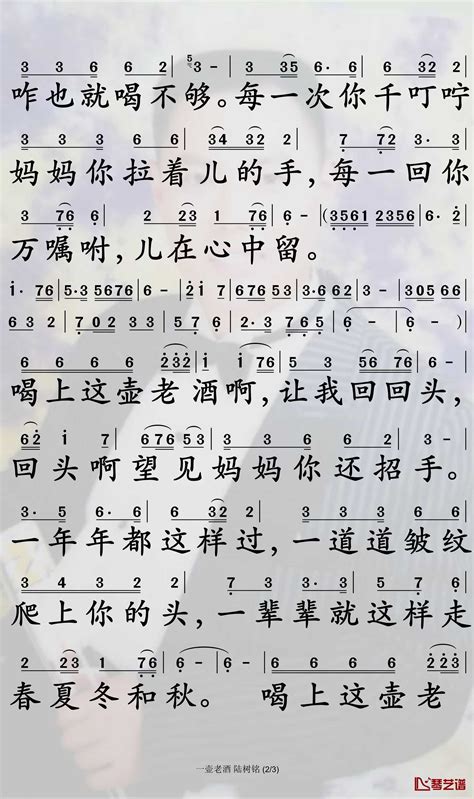 3 3 6 6 2 5 3 - | 3 35 6· 6 6 32 2
咋也就喝不够。每一次你千叮咛
3 3 3 6 6 6 34 32 2 | 7 7 2 3·3
妈妈你拉着儿的手,每一回你
3 76 6 | 2 23 1 76 6 - | (3561 2356 | 6·2)
万嘱咐,儿在心中留。
i· 76 | 5·3 5676 | 6 - | 2·3 765 | 3·6 62 | 3 - | 305 66
63 2 | 7 02 33 | 5 76 | 02 3 27 65 | 6 - | 6 - )
6 6 6 6 232 | i i 76 | 5 5 3 56 76
喝上这壶老酒啊,让我回回头,
62 i 7 | 676 53 | 3 3 6 6 6 3 2 | 3 -
回头啊望见妈妈你还招手。
3· 5 6· 6 | 5 6 3 3 | 2 2 3 6· 3
一年年都这样过,一道道皱纹
3 4 3 2 2 | 7 3 3·3 | 5 5 7 6
爬上你的头,一辈辈就这样走
2 23 1 76 | 6 - | 6 - | 6 6 6 6 2 23
春夏冬和秋。 喝上这壶老
一壶老酒 陆树铭 (2/3)
琴艺谱